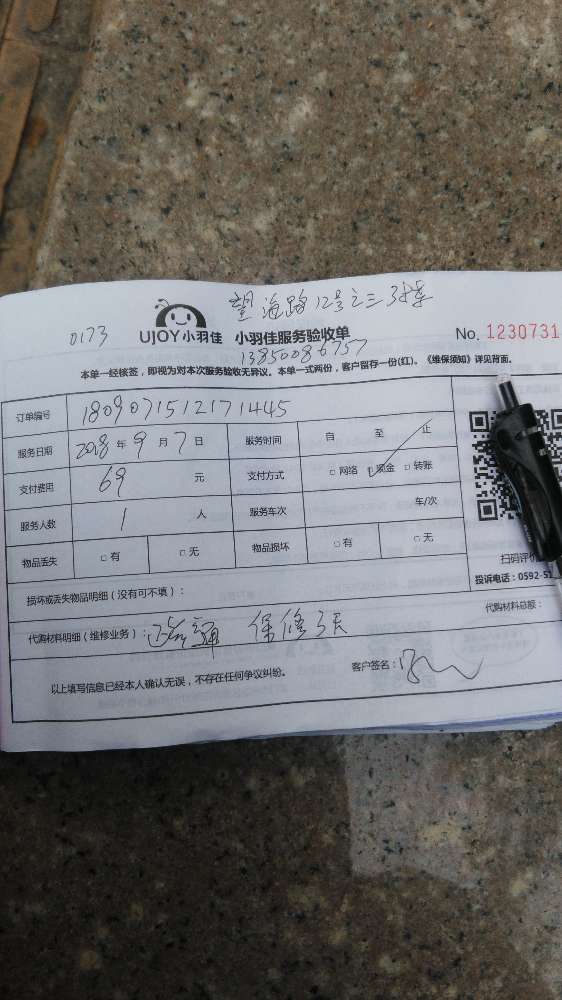 望海路12号之三3楼
0173 UJOY小羽佳 小羽佳服务验收单 No. 1230731
13850086757
本单一经核签，即视为对本次服务验收无异议。本单一式两份，客户留存一份(红)。《维保须知》详见背面。
订单编号 1809071512171445
服务日期 2018年9月7日 服务时间 自 至 止
支付费用 69 元 支付方式 □网络 □现金 □转账
服务人数 1 人 服务车次 车/次
物品丢失 □有 □无 物品损坏 □有 □无
扫码评价
投诉电话：0592-5
损坏或丢失物品明细（没有可不填）：
代购材料明细（维修业务）： 疏通 保修3天 代购材料总额：
以上填写信息已经本人确认无误，不存在任何争议纠纷。 客户签名：